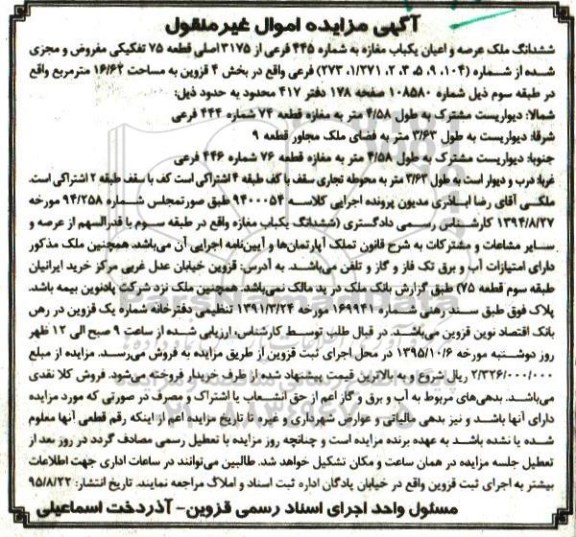 آگهی مزایده اموال غیرمنقول
ششدانگ ملک عرصه و اعیان یکباب مغازه به شماره ۴۴۵ فرعی از ۳۱۷۵ اصلی قطعه ۷۵ تفکیکی مفروض و مجزی
شده از شماره (۱۰۴، ۹، ۵، ۳، ۲، ۱/۲۷۱، ۲۷۳) فرعی واقع در بخش ۴ قزوین به مساحت ۱۶/۶۲ مترمربع واقع
در طبقه سوم ذیل شماره ۱۰۸۵۸۰ صفحه ۱۷۸ دفتر ۴۱۷ محدود به حدود ذیل:
شمالا: دیواریست مشترک به طول ۴/۵۸ متر به مغازه قطعه ۷۴ شماره ۴۴۴ فرعی
شرقا: دیواریست به طول ۳/۶۳ متر به فضای ملک مجاور قطعه ۹
جنوبا: دیواریست مشترک به طول ۴/۵۸ متر به مغازه قطعه ۷۶ شماره ۴۴۶ فرعی
غربا: درب و دیوار است به طول ۳/۶۳ متر به محوطه تجاری سقف با کف طبقه ۴ اشتراکی است کف با سقف طبقه ۲ اشتراکی است.
ملکی آقای رضا اباذری مدیون پرونده اجرایی کلاسه ۹۴۰۰۰۵۴ طبق صورتمجلس شماره ۹۴/۲۵۸ مورخه
۱۳۹۴/۸/۲۷ کارشناس رسمی دادگستری (ششدانگ یکباب مغازه واقع در طبقه سوم با قدرالسهم از عرصه و
سایر مشاعات و مشترکات به شرح قانون تملک آپارتمان‌ها و آیین‌نامه اجرایی آن می‌باشد. همچنین ملک مذکور
دارای امتیازات آب و برق تک فاز و گاز و تلفن می‌باشد. به آدرس: قزوین خیابان عدل غربی مرکز خرید ایرانیان
طبقه سوم قطعه ۷۵) طبق گزارش بانک ملک در ید مالک نمی‌باشد. همچنین ملک نزد شرکت پادنوین بیمه باشد.
پلاک فوق طبق سند رهنی شماره ۱۶۹۹۴۱ مورخه ۱۳۹۱/۳/۲۴ تنظیمی دفترخانه شماره یک قزوین در رهن
بانک اقتصاد نوین قزوین می‌باشد. در قبال طلب توسط کارشناس، ارزیابی شده از ساعت ۹ صبح الی ۱۲ ظهر
روز دوشنبه مورخه ۱۳۹۵/۱۰/۶ در محل اجرای ثبت قزوین از طریق مزایده به فروش می‌رسد. مزایده از مبلغ
۲/۳۲۶/۰۰۰/۰۰۰ ریال شروع و به بالاترین قیمت پیشنهاد شده از طرف خریدار فروخته می‌شود. فروش کلا نقدی
می‌باشد. بدهی‌های مربوط به آب و برق و گاز اعم از حق انشعاب یا اشتراک و مصرف در صورتی که مورد مزایده
دارای آنها باشد و نیز بدهی مالیاتی و عوارض شهرداری و غیره تا تاریخ مزایده اعم از اینکه رقم قطعی آنها معلوم
شده یا نشده باشد به عهده برنده مزایده است و چنانچه روز مزایده با تعطیل رسمی مصادف گردد در روز بعد از
تعطیل جلسه مزایده در همان ساعت و مکان تشکیل خواهد شد. طالبین می‌توانند در ساعات اداری جهت اطلاعات
بیشتر به اجرای ثبت قزوین واقع در خیابان پادگان اداره ثبت اسناد و املاک مراجعه نمایند. تاریخ انتشار: ۹۵/۸/۲۲
مسئول واحد اجرای اسناد رسمی قزوین- آذردخت اسماعیلی